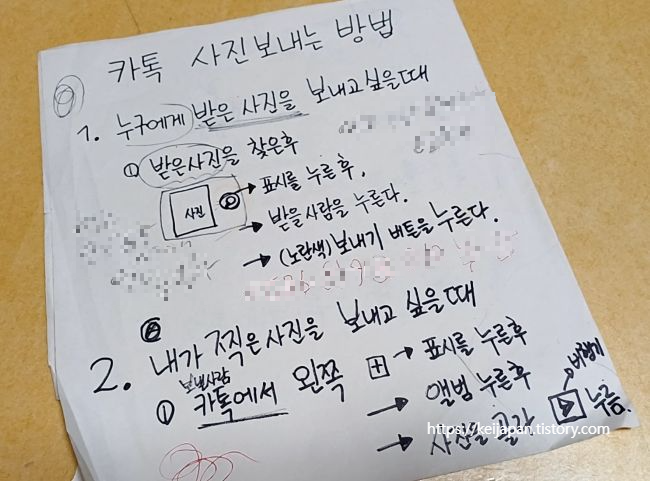 카톡 사진 보내는 방법
1. 누구에게 받은 사진을 보내고 싶을때
① 받은사진을 찾은후
사진 → 표시를 누른후,
→ 받을사람을 누른다.
→ (노란색) 보내기 버튼을 누른다.
2. 내가 찍은 사진을 보내고 싶을때
보낼사람
① 카톡에서 왼쪽 + → 표시를 누른후
→ 앨범 누른후
비행기
→ 사진을 골라 ▷ 누름.
https://keijapan.tistory.com